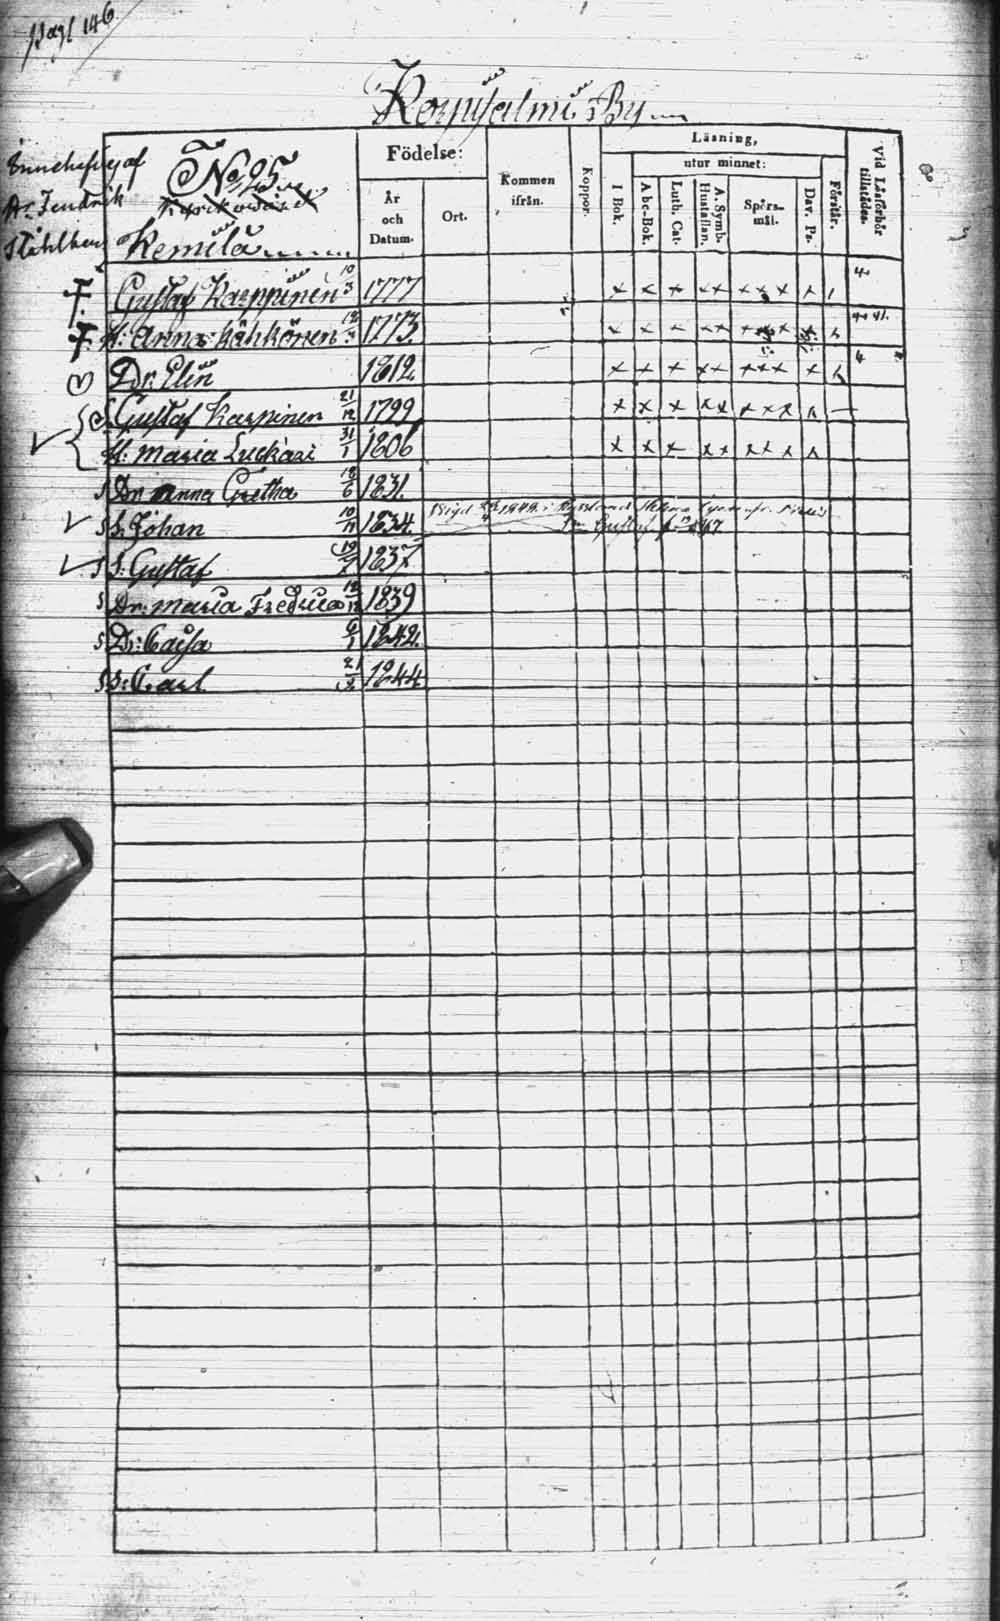 pag 146
Korpijalmi By
Innehafves af
Hr. Fendrik
Stålberg
No 25
Kemilä
Födelse:
År och Datum.
Ort.
Kommen ifrån.
Koppor.
Läsning,
utur minnet:
I Bok.
Abc-Bok.
Luth. Cat.
A. Symb. Hustaflan.
Spörsmål.
Dav. Ps.
Förstår.
Vid Läsförhör tillstädes.
Gustaf Karppinen 10/3 1777 x x x xx xxx x 4
H: Anna Kähkönen 1773 x x x xx x 41.
Dr. Elin 1812 x x x xx xxx x 4
Gustaf Karpinen 21/12 1799 x x x xx xxx
H: Maria Luckari 31/1 1806 x x x xx xxx
Dr Anna Gretha 18/6 1831
S. Johan 10/11 1834
S: Gustaf 19/7 1837
Dr: Maria Fredrica 1839
Dr: Caisa 9/1 1842
S: Carl 21/2 1844